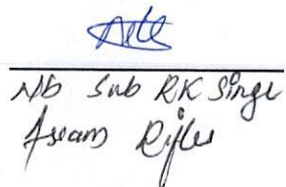 Nb Sub RK Singh
Assam Rifles